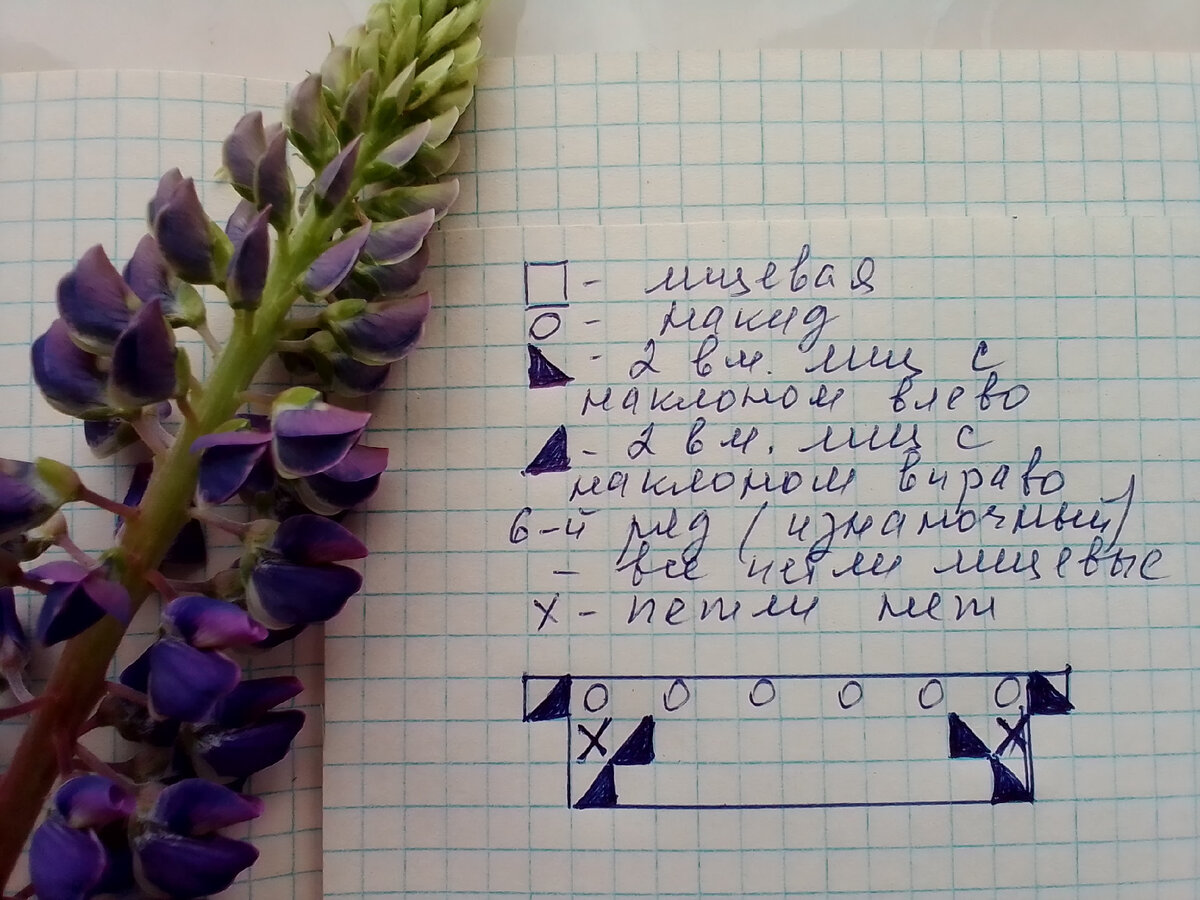 □ - лицевая
О - накид
◣ - 2 вм. лиц с
наклоном влево
◢ - 2 вм. лиц с
наклоном вправо
6-й ряд (изнаночный)
- все петли лицевые
х - петли нет
О О О О О О
X X